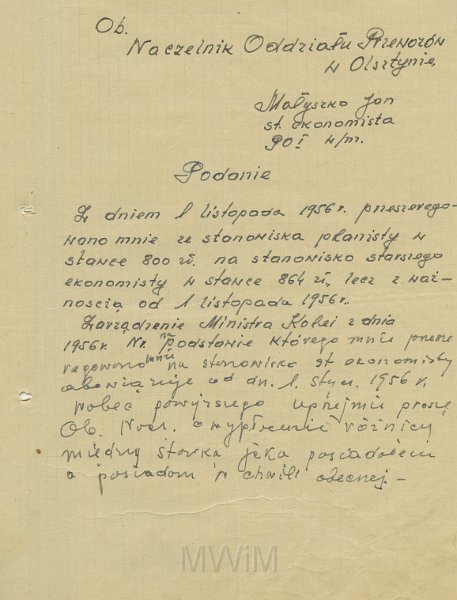 Ob.
Naczelnik Oddziału Przewozów
w Olsztynie
Małyszko Jan
st. ekonomista
PO I w/m.
Podanie
Z dniem 1 listopada 1956 r. przeszerego-
wano mnie ze stanowiska planisty w
stawce 800 zł. na stanowisko starszego
ekonomisty w stawce 864 zł, lecz z waż-
nością od 1 listopada 1956 r.
Zarządzenie Ministra Kolei z dnia
1956 r. Nr. na podstawie którego mnie przesze
regowano mnie na stanowisko st. ekonomisty
obowiązuje od dn. 1. stycz. 1956 r.
wobec powyższego uprzejmie proszę
Ob. Nacz. o wypłacenie różnicy
między stawką jaką posiadałem
a posiadam w chwili obecnej. -
MWiM